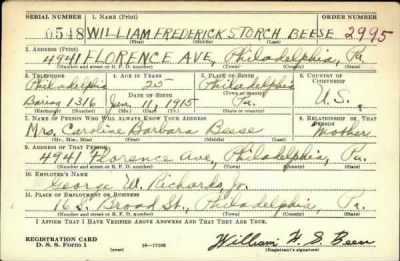 SERIAL NUMBER 1. NAME (Print) ORDER NUMBER
0548 WILLIAM FREDERICK STORCH BEESE 2995
(First) (Middle) (Last)
2. ADDRESS (Print)
4941 FLORENCE AVE, Philadelphia, Pa.
(Number and street or R. F. D. number) (Town) (County) (State)
3. TELEPHONE 4. AGE IN YEARS 5. PLACE OF BIRTH 6. COUNTRY OF CITIZENSHIP
Philadelphia 25 Philadelphia
(Exchange) DATE OF BIRTH (Town or county)
Baring 1316 Jan. 11, 1915 Pa. U.S.
(Number) (Mo.) (Day) (Yr.) (State or country)
7. NAME OF PERSON WHO WILL ALWAYS KNOW YOUR ADDRESS 8. RELATIONSHIP OF THAT PERSON
Mrs. Caroline Barbara Beese Mother
(Mr., Mrs., Miss) (First) (Middle) (Last)
9. ADDRESS OF THAT PERSON
4941 Florence Ave, Philadelphia, Pa.
(Number and street or R. F. D. number) (Town) (County) (State)
10. EMPLOYER'S NAME
George W. Richards, Jr.
11. PLACE OF EMPLOYMENT OR BUSINESS
16 S. Broad St., Philadelphia, Pa.
(Number and street or R. F. D. number) (Town) (County) (State)
I AFFIRM THAT I HAVE VERIFIED ABOVE ANSWERS AND THAT THEY ARE TRUE.
REGISTRATION CARD
D. S. S. Form 1 (over) 16—17105 William F. S. Beese
(Registrant's signature)